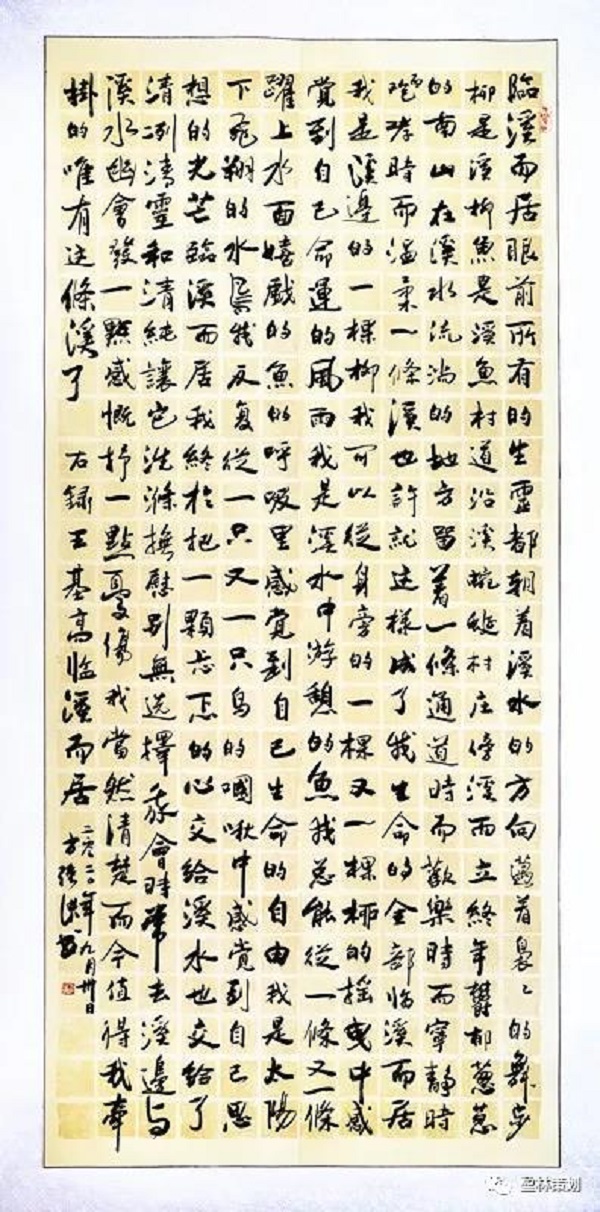 临溪而居眼前所有的生灵都朝着溪水的方向蘸着袅々的舞步
柳是溪柳鱼是溪鱼村道沿溪蜿蜒村庄傍溪而立终年郁郁葱葱
的南山在溪水流淌的地方留着一条通道时而歡樂時而寧靜時
而溫柔一條溪也許就这樣成了我生命的全部临溪而居
我是溪邊的一棵柳我可以從身旁的一棵又一棵柳的摇曳中感
觉到自己命運的風雨我是溪水中游憩的魚我总能從一條又一條
躍上水面嬉戲的魚的呼吸里感覺到自己生命的自由我是太陽
下飛翔的水我反复從一只又一只鸟的啁啾中感觉到自己思
想的光芒臨溪而居我終於把一顆忐忑的心交給溪水也交給了
清冽清靈和清純讓它洗滌撫慰别無选擇我會時常去溪邊与
溪水幽會發一點感慨抒一點憂傷我當然清楚而今值得我牽
掛的唯有这條溪了 右錄王基高临溪而居
二零二二年九月卅日